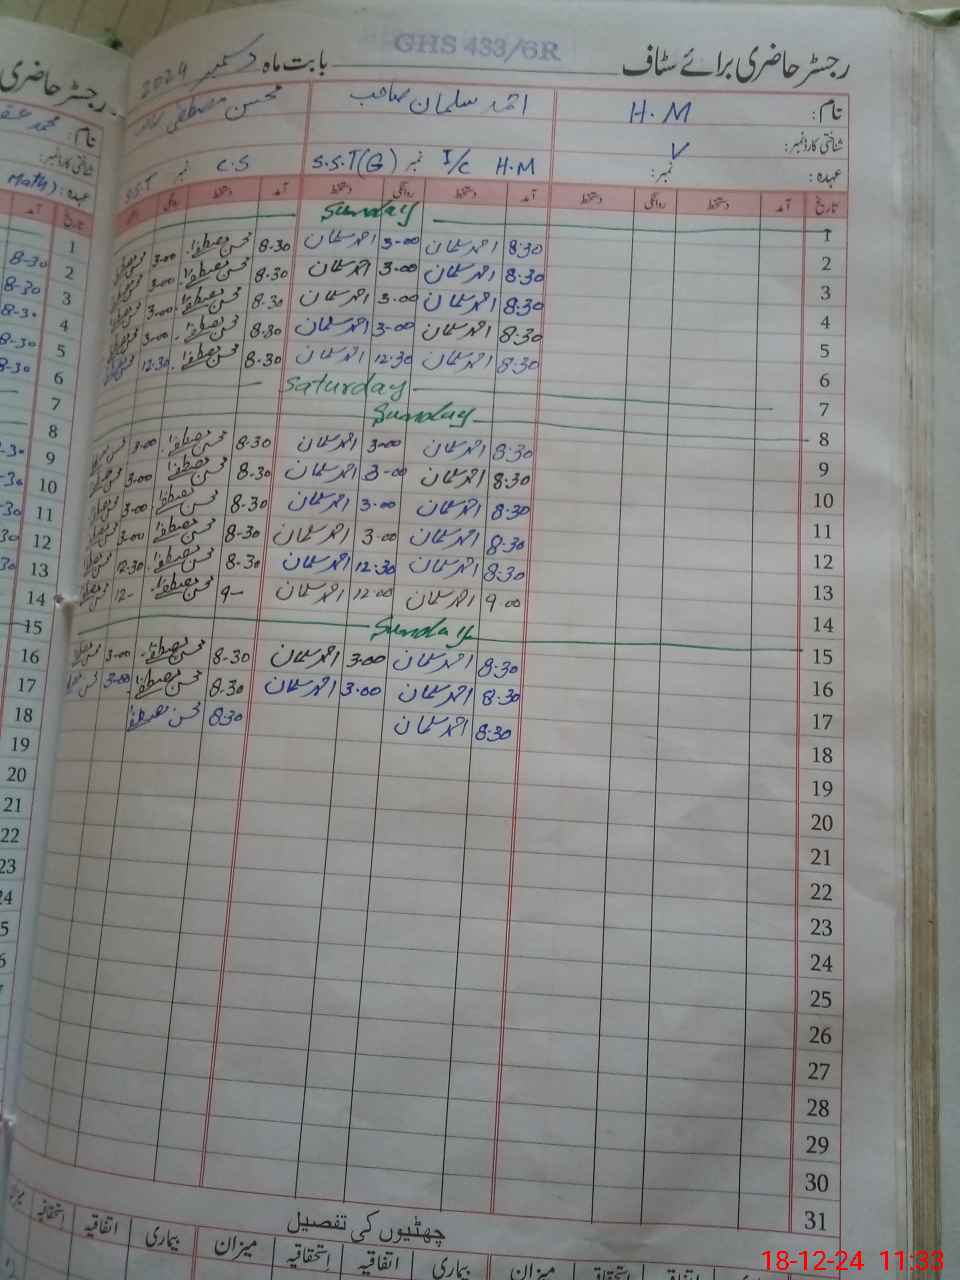 GHS 433/6R
رجسٹر حاضری برائے سٹاف بابت ماہ دسمبر 2024
نام: H.M احمد سلمان صاحب محسن مصطفی
شناختی کارڈ نمبر: V
عہدہ: نمبر: H.M I/C نمبر S.S.T(G) C.S نمبر S.S.T
تاریخ آمد دستخط روانگی دستخط آمد دستخط روانگی دستخط آمد دستخط
1 Sunday
2 8:30 احمد سلمان 3-00 احمد سلمان 8-30 محسن مصطفی 3-00
3 8:30 احمد سلمان 3.00 احمد سلمان 8-30 محسن مصطفی 3-00
4 8:30 احمد سلمان 3.00 احمد سلمان 8-30 محسن مصطفی 3-00
5 8:30 احمد سلمان 3-00 احمد سلمان 8-30 محسن مصطفی 3-00
6 8:30 احمد سلمان 12.30 احمد سلمان 8-30 محسن مصطفی 12:30
7 Saturday
8 Sunday
9 8:30 احمد سلمان 3-00 احمد سلمان 8-30 محسن مصطفی 3-00
10 8:30 احمد سلمان 3-00 احمد سلمان 8-30 محسن مصطفی 3-00
11 8:30 احمد سلمان 3.00 احمد سلمان 8-30 محسن مصطفی 3-00
12 8:30 احمد سلمان 3.00 احمد سلمان 8-30 محسن مصطفی 3-00
13 8:30 احمد سلمان 12:30 احمد سلمان 8-30 محسن مصطفی 12:30
14 9.00 احمد سلمان 12.00 احمد سلمان 9- محسن مصطفی 12-
15 Sunday
16 8:30 احمد سلمان 3.00 احمد سلمان 8-30 محسن مصطفی 3-00
17 8:30 احمد سلمان 3.00 احمد سلمان 8.30 محسن مصطفی 3-00
18 8:30 احمد سلمان 8.30 محسن مصطفی
19
20
21
22
23
24
25
26
27
28
29
30
31
چھٹیوں کی تفصیل
میزان بیماری اتفاقیہ استحقاقیہ میزان بیماری اتفاقیہ استحقاقیہ
18-12-24 11:33